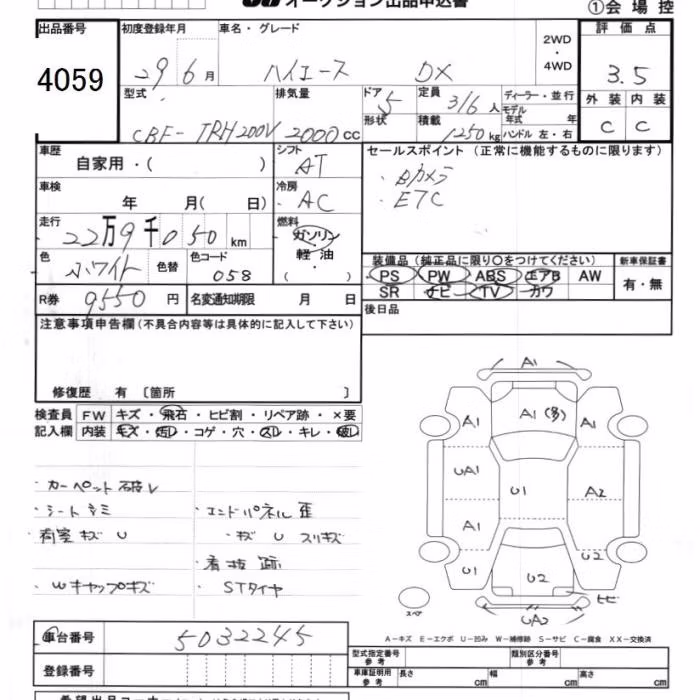 オークション出品申込書
①会場控
出品番号
4059
初度登録年月
29 6月
車名・グレード
ハイエース DX
2WD
・
4WD
評価点
3.5
外装 内装
C C
型式
CBF-TRH200V
排気量
2000cc
ドア 5
形状
定員 3/6人
積載 1250kg
ディーラー・並行
モデル年式 年
ハンドル 左・右
車歴
自家用・( )
シフト
AT
車検
年 月( 日)
冷房
AC
走行
22万9千050km
燃料
ガソリン
・
軽油
( )
色
ホワイト
色替
色コード
058
R券 9550円
名変通知期限 月 日
セールスポイント(正常に機能するものに限ります)
・Bカメラ
・ETC
装備品(純正品に限り○をつけてください)
PS PW ABS エアB AW
SR ナビ TV カワ
新車保証書
有・無
後日品
注意事項申告欄(不具合内容等は具体的に記入して下さい)
修復歴 有〔箇所 〕
検査員記入欄
FW キズ・飛石・ヒビ割・リペア跡・×要
内装 キズ・汚レ・コゲ・穴・スレ・キレ・破レ
・カーペット破レ
・シートシミ
・荷室キズU
・Wキャップキズ
・エンドパネル歪
・キズUスリキズ
・看板跡
・STタイヤ
A1
A1 A1(多) A1
UA1 U1 A2
A1
U1 U2 U2
ヒビ
スペア
UA2
A−キズ E−エクボ U−凹み W−補修跡 S−サビ C−腐食 XX−交換済
車台番号 5032245
登録番号
型式指定番号 参考
類別区分番号 参考
車庫証明用 参考 長さ cm 幅 cm 高さ cm